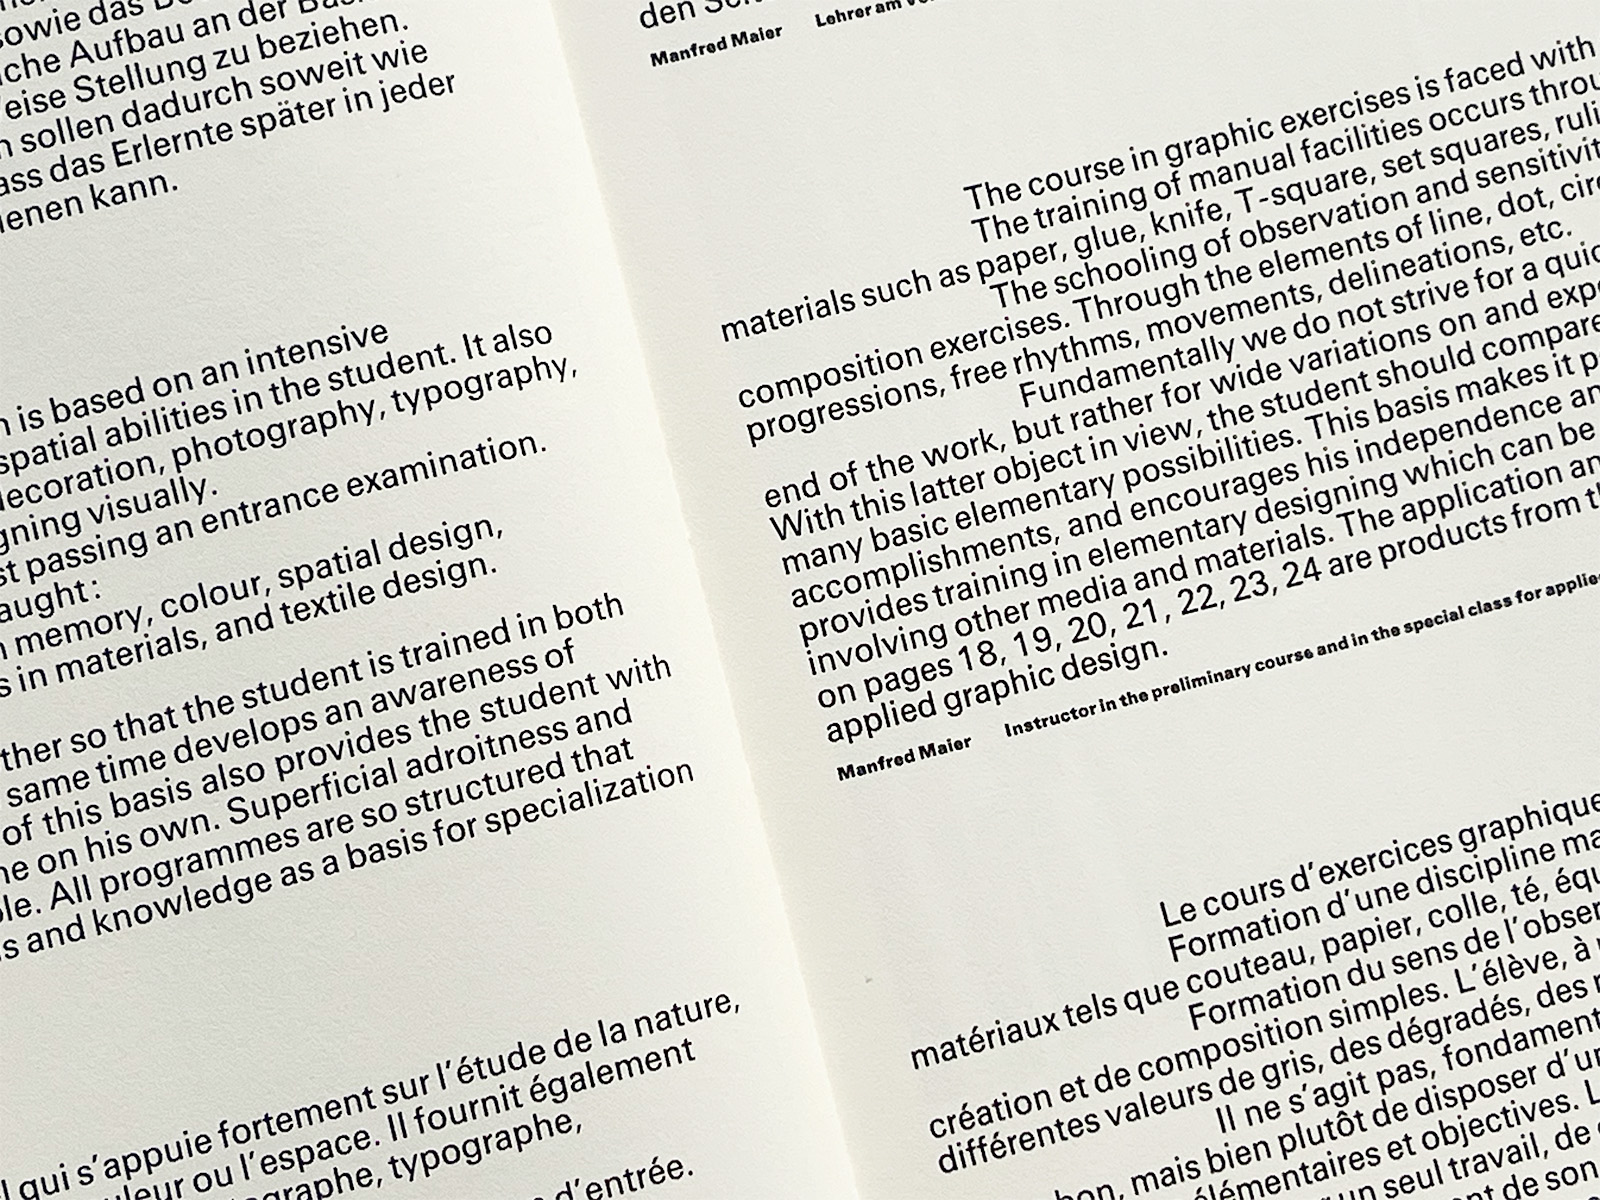 sowie das
Aufbau an der
Stellung zu beziehen.
sollen dadurch soweit wie
das Erlernte später in jeder
kann.
is based on an intensive
spatial abilities in the student. It also
photography, typography,
visually.
passing an entrance examination.
memory, colour, spatial design,
in materials, and textile design.
so that the student is trained in both
same time develops an awareness of
of this basis also provides the student with
on his own. Superficial adroitness and
All programmes are so structured that
and knowledge as a basis for specialization
qui s’appuie fortement sur l’étude de la nature,
ou l’espace. Il fournit également
typographe,
d’entrée.
den
Manfred Maier Lehrer am
The course in graphic exercises is faced with
The training of manual facilities occurs
materials such as paper, glue, knife, T-square, set squares,
The schooling of observation and
composition exercises. Through the elements of line, dot,
progressions, free rhythms, movements, delineations, etc.
Fundamentally we do not strive for a
end of the work, but rather for wide variations on and
With this latter object in view, the student should compare
many basic elementary possibilities. This basis makes it
accomplishments, and encourages his independence
provides training in elementary designing which can be
involving other media and materials. The application
on pages 18, 19, 20, 21, 22, 23, 24 are products from
applied graphic design.
Manfred Maier Instructor in the preliminary course and in the special class for
Le cours d’exercices
Formation d’une discipline
matériaux tels que couteau, papier, colle, té,
Formation du sens de
création et de composition simples. L’élève, à
différentes valeurs de gris, des dégradés, des
Il ne s’agit pas,
mais bien plutôt de disposer
et objectives.
un seul travail, de
de son